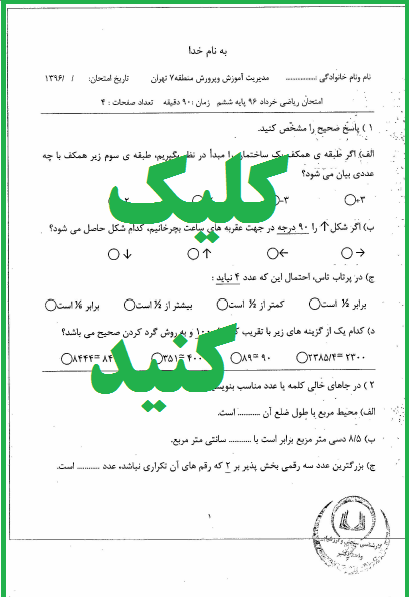 به نام خدا
نام ونام خانوادگی .................. مدیریت آموزش وپرورش منطقه۷ تهران تاریخ امتحان: / /۱۳۹۶
امتحان ریاضی خرداد ۹۶ پایه ششم زمان :۹۰ دقیقه تعداد صفحات : ۴
۱ ) پاسخ صحیح را مشخّص کنید.
الف) اگر طبقه ی همکف یک ساختمان را مبدأ در نظر بگیریم، طبقه ی سوم زیر همکف با چه
عددی بیان می شود؟
+۳ -۳
ب) اگر شکل ↑ را ۹۰ درجه در جهت عقربه های ساعت بچرخانیم، کدام شکل حاصل می شود؟
→ ← ↑ ↓
ج) در پرتاب تاس، احتمال این که عدد ۴ نیاید :
برابر ½ است کمتر از ½ است بیشتر از ½ است برابر ⅙ است
د) کدام یک از گزینه های زیر با تقریب و به روش گرد کردن صحیح می باشد؟
۲۳۸۵/۴≃۲۳۰۰ ۸۹≃۹۰ ۳۵۱≃۴۰۰
۲ ) در جاهای خالی کلمه یا عدد مناسب بنویسید
الف) محیط مربع با طول ضلع آن ........... است.
ب) ۸/۵ دسی متر مربع برابر است با ........... سانتی متر مربع.
ج) بزرگترین عدد سه رقمی بخش پذیر بر ۲ که رقم های آن تکراری نباشد، عدد ........... است.
۱
کلیک
کنید